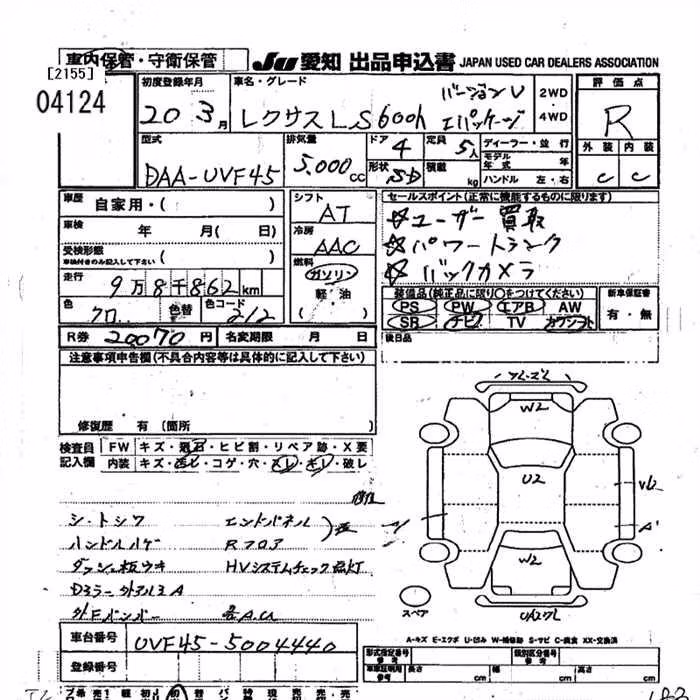 車内保管・守衛保管
JU 愛知 出品申込書 JAPAN USED CAR DEALERS ASSOCIATION
[2155]
04124
初度登録年月 車名・グレード 評価点
20 3月 レクサスLS600h バージョンU Iパッケージ 2WD・4WD R
型式 排気量 ドア 4 定員 5人 ディーラー・並行 外装 内装
DAA-UVF45 5.000cc 形状 SD 積載 kg モデル年式 年 C C
ハンドル 左・右
車歴 自家用・( ) シフト AT セールスポイント(正常に機能するものに限ります)
車検 年 月( 日) 冷房 AAC ☆ユーザー買取
受検形態 ( ) ☆パワートランク
車検付きのみ記入して下さい 燃料 ガソリン ☆バックカメラ
走行 9万8千862km 軽油
色 クロ 色替 色コード 212 ( )
装備品(純正品に限り○をつけてください) 新車保証書
PS PW エアB AW 有・無
SR ナビ TV カワシート
R券 20070円 名変期限 月 日 後日品
注意事項申告欄(不具合内容等は具体的に記入して下さい)
修復歴 有(箇所 )
検査員記入欄 FW キズ・飛石・ヒビ割・リペア跡・X要
内装 キズ・汚レ・コゲ・穴・スレ・キレ・破レ
シートシワ エンドパネル
ハンドルハゲ Rフロア
ダッシュ板ウキ HVシステムチェック点灯
Dミラー
外Fバンパー 各AU
W2
U2
W2
A'
スペア
A-キズ E-エクボ U-凹み W-補修跡 S-サビ C-腐食 XX-交換済
車台番号 UVF45-5004440
登録番号
形式指定番号 参考 類別区分番号 参考
車車証明用参考 長さ cm 幅 cm 高さ cm